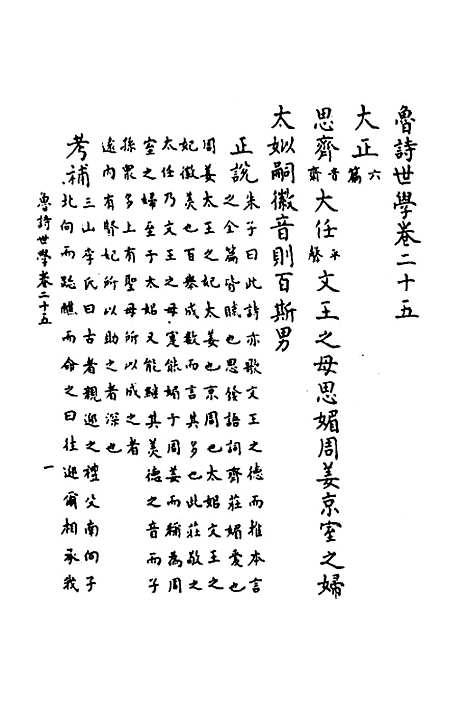 魯詩世學卷二十五
大正六篇
思齊音齋大任平聲文王之母思媚周姜京室之婦
太姒嗣徽音則百斯男
正說朱子曰此詩亦歌文王之德而推本言
之全篇皆賦也思發語詞齊莊媚愛也
周姜太王之妃太姜也京周也太姒文王之
妃徽美也百舉成數而言其多也此莊敬之
太任乃文王之母實能媚于周姜而稱為周
室之婦至于太姒又能繼其美德之音而子
孫眾多上有聖母所以成之者
遠內有賢妃所以助之者深也
考補三山李氏曰古者親迎之禮父南向子
北向而跪醮而命之曰往迎爾相承我
魯詩世學卷二十五
一